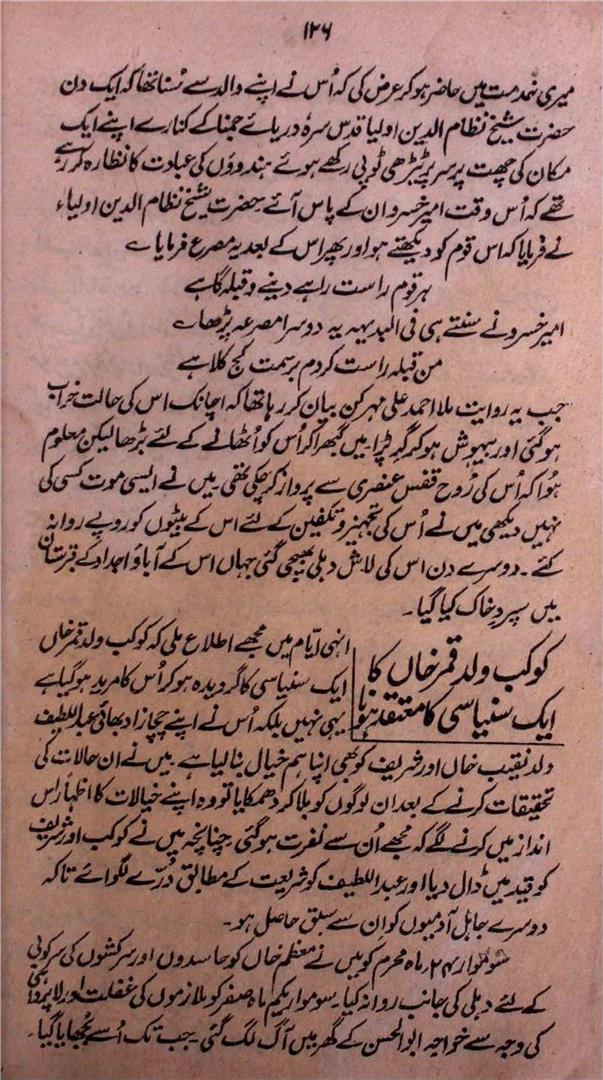 ۱۲۶
میری خدمت میں حاضر ہو کر عرض کی کہ اُس نے اپنے والد سے سُنا تھا کہ ایک دن
حضرت شیخ نظام الدین اولیا قدس سرہٗ دریائے جمنا کے کنارے اپنے ایک
مکان کی چھت پر سر پر ٹیڑھی ٹوپی رکھے ہوئے ہندوؤں کی عبادت کا نظارہ کر رہے
تھے کہ اُس وقت امیر خسرو ان کے پاس آئے۔ حضرت شیخ نظام الدین اولیاء
نے فرمایا کہ اس قوم کو دیکھتے ہو اور پھر اس کے بعد یہ مصرع فرمایا ؎
ہر قوم راست راہے دینے و قبلہ گاہے
امیر خسرو نے سنتے ہی فی البدیہہ یہ دوسرا مصرعہ پڑھا ؎
من قبلہ راست کردم بر سمت کج کلاہے
جب یہ روایت ملا احمد علی مہرکن بیان کر رہا تھا کہ اچانک اس کی حالت خراب
ہو گئی اور بیہوش ہو کر گر پڑا۔ میں گھبرا کر اُس کو اُٹھانے کے لئے بڑھا لیکن معلوم
ہُوا کہ اُس کی رُوح قفسِ عنصری سے پرواز کر چکی تھی۔ میں نے ایسی موت کسی کی
نہیں دیکھی میں نے اُس کی تجہیز و تکفین کے لئے اس کے بیٹوں کو روپے روانہ
کئے۔ دوسرے دن اس کی لاش دہلی بھیجی گئی جہاں اس کے آباؤ اجداد کے قبرستان
میں سپردِ خاک کیا گیا۔
کوکب ولد قمر خاں کا
ایک سنیاسی کا معتقد ہونا
انہی ایّام میں مجھے اطلاع ملی کہ کوکب ولد قمر خاں
ایک سنیاسی کا گرویدہ ہو کر اُس کا مرید ہو گیا ہے
یہی نہیں بلکہ اُس نے اپنے چچا زاد بھائی عبداللطیف
ولد نقیب خاں اور شریف کو بھی اپنا ہم خیال بنا لیا ہے۔ میں نے ان حالات کی
تحقیقات کرنے کے بعد ان لوگوں کو بلا کر دھمکایا تو وہ اپنے خیالات کا اظہار اس
انداز میں کرنے لگے کہ مجھے اُن سے نفرت ہو گئی۔ چنانچہ میں نے کوکب اور شریف
کو قید میں ڈال دیا اور عبداللطیف کو شریعت کے مطابق دُرّے لگوائے تاکہ
دوسرے جاہل آدمیوں کو ان سے سبق حاصل ہو۔
سوموار ۲۴ ماہ محرم کو میں نے معظم خاں کو حاسدوں اور سرکشوں کی سرکوبی
کے لئے دہلی کی جانب روانہ کیا۔ سوموار یکم ماہ صفر کو ملازموں کی غفلت اور لاپرواہی
کی وجہ سے خواجہ ابوالحسن کے گھر میں آگ لگ گئی۔ جب تک اُسے بجھایا گیا۔